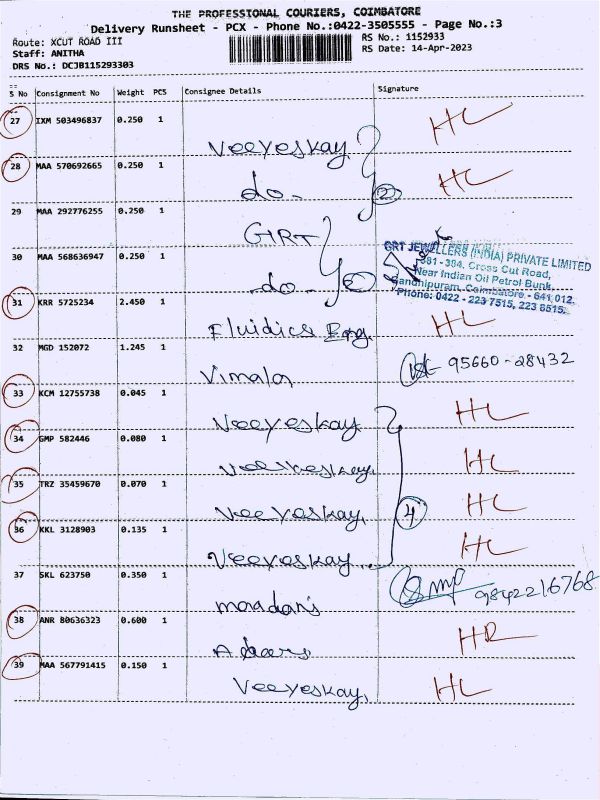 THE PROFESSIONAL COURIERS, COIMBATORE
Delivery Runsheet - PCX - Phone No.:0422-3505555 - Page No.:3
Route: XCUT ROAD III
RS No.: 1152933
Staff: ANITHA
RS Date: 14-Apr-2023
DRS No.: DCJB115293303
S No Consignment No Weight PCS Consignee Details Signature
27 IXM 503496837 0.250 1 HL
Veeyeskay
28 MAA 570692665 0.250 1 HL
do- 2
29 MAA 292776255 0.250 1
GRT
30 MAA 568636947 0.250 1
-do- 2
GRT JEWELLERS (INDIA) PRIVATE LIMITED
381 - 384, Cross Cut Road,
Near Indian Oil Petrol Bunk,
Gandhipuram, Coimbatore - 641 012.
Phone: 0422 - 223 7515, 223 8515.
31 KRR 5725234 2.450 1 HL
Fluidics Eng.
32 MGD 152072 1.245 1 95660-28432
Vimala
33 KCM 12755738 0.045 1 HL
Veeyeskay
34 GMP 582446 0.080 1 HL
Veeyeskay.
35 TRZ 35459670 0.070 1 HL
Veeyeskay, 4
36 KKL 3128903 0.135 1 HL
Veeyeskay.
37 SKL 623750 0.350 1 9842216768
38 ANR 80636323 0.600 1 HR
39 MAA 567791415 0.150 1 HL
Veeyeskay,